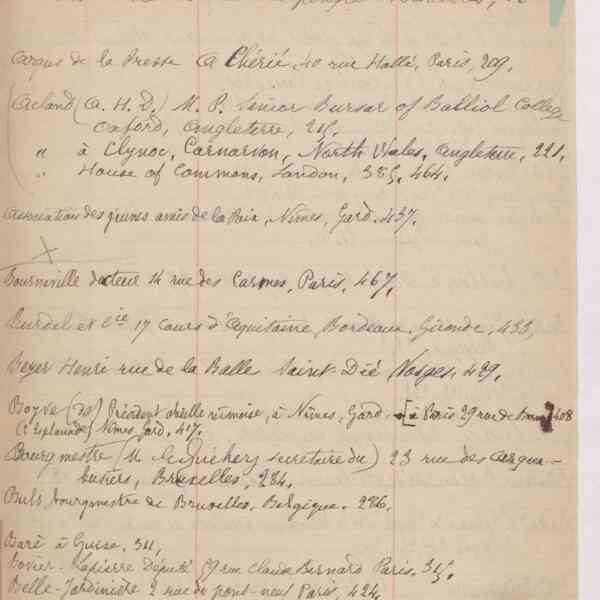 Argus de la Presse A Chérié 40 rue Hallé, Paris, 209.
Acland (A. H. D.) M. P. Senior Bursar of Balliol College
Oxford, Angleterre, 215.
" à Clynoc, Carnarvon, North Wales, Angleterre, 221,
" House of Commons, London, 385, 464.
Association des jeunes amis de la Paix, Nîmes, Gard. 437.
X
Bourneville docteur 14 rue des Carmes, Paris, 467,
Burdel et Cie 17 cours d'Aquitaine, Bordeaux, Gironde, 433,
Beyer Henri rue de la Balle Saint-Dié Vosges, 429.
Boyve (de) Président abeille nimoise, à Nîmes, Gard, [à Paris 29 rue de 408
(2 Esplanade) Nîmes, Gard, 417.
Bourgmestre (M. secrétaire du) 23 rue des arque-
busiers, Bruxelles, 284.
Buls, bourgmestre de Bruxelles, Belgique. 286.
Baré à Guise. 311,
Bovier-Lapierre Député 59 rue Claude Bernard Paris. 315.
Belle-Jardinière 2 rue du pont-neuf Paris, 424,